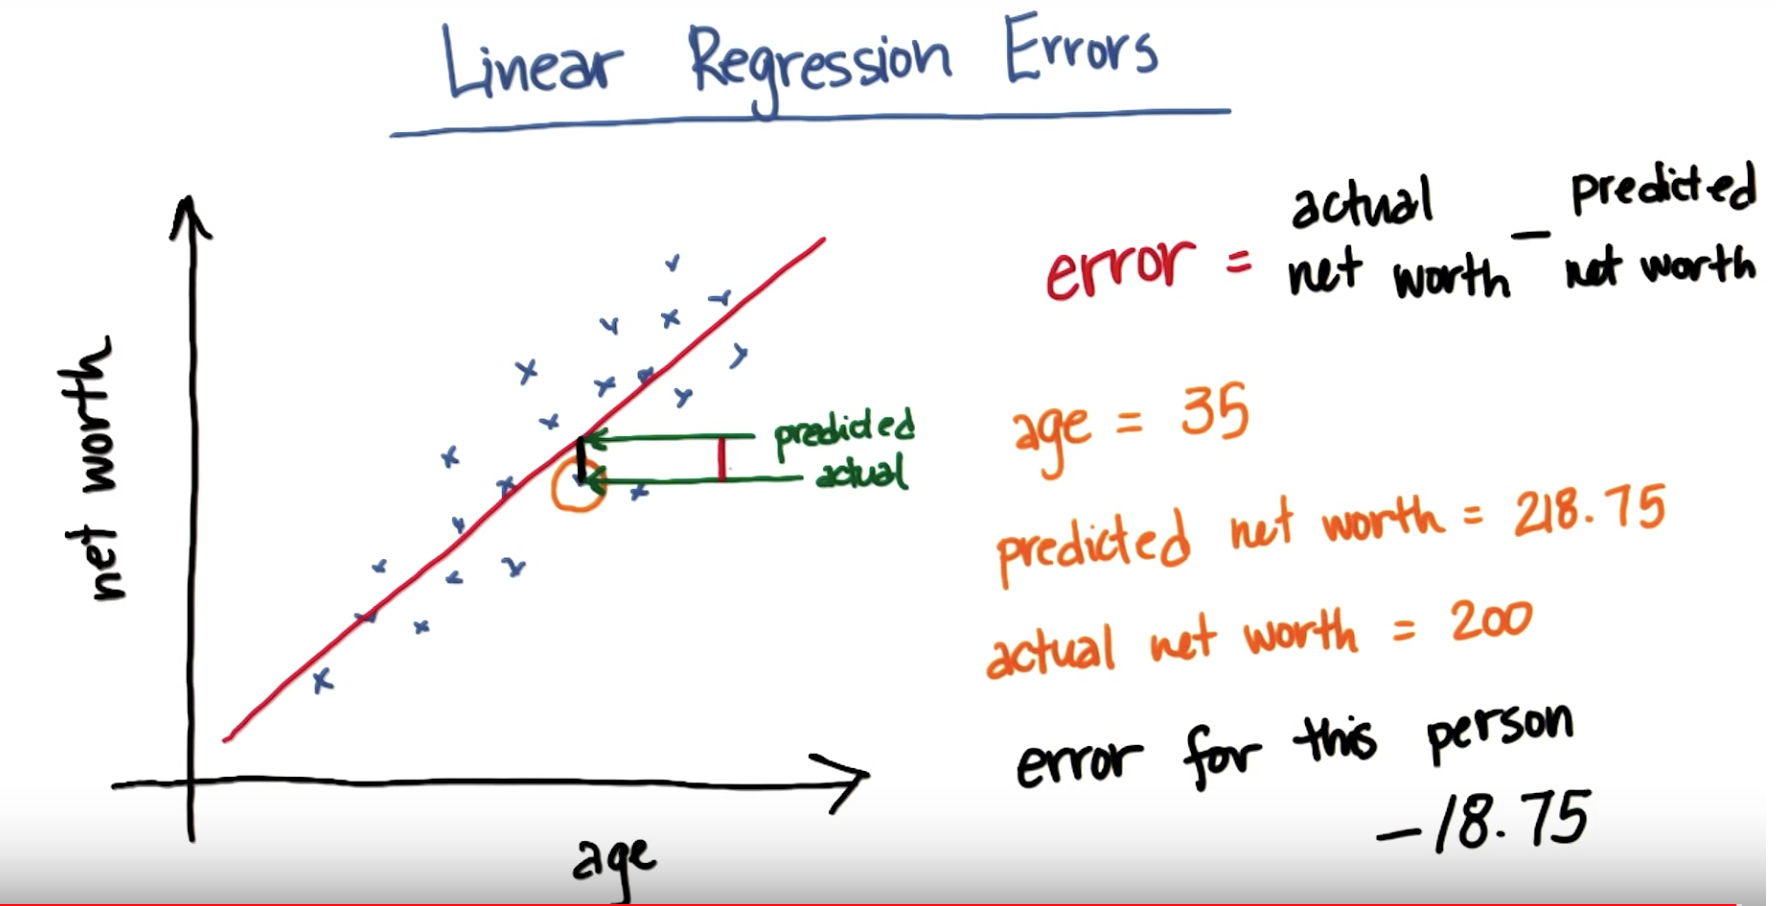 Linear Regression Errors
net worth
age
predicted
actual
error = actual net worth - predicted net worth
age = 35
predicted net worth = 218.75
actual net worth = 200
error for this person
-18.75